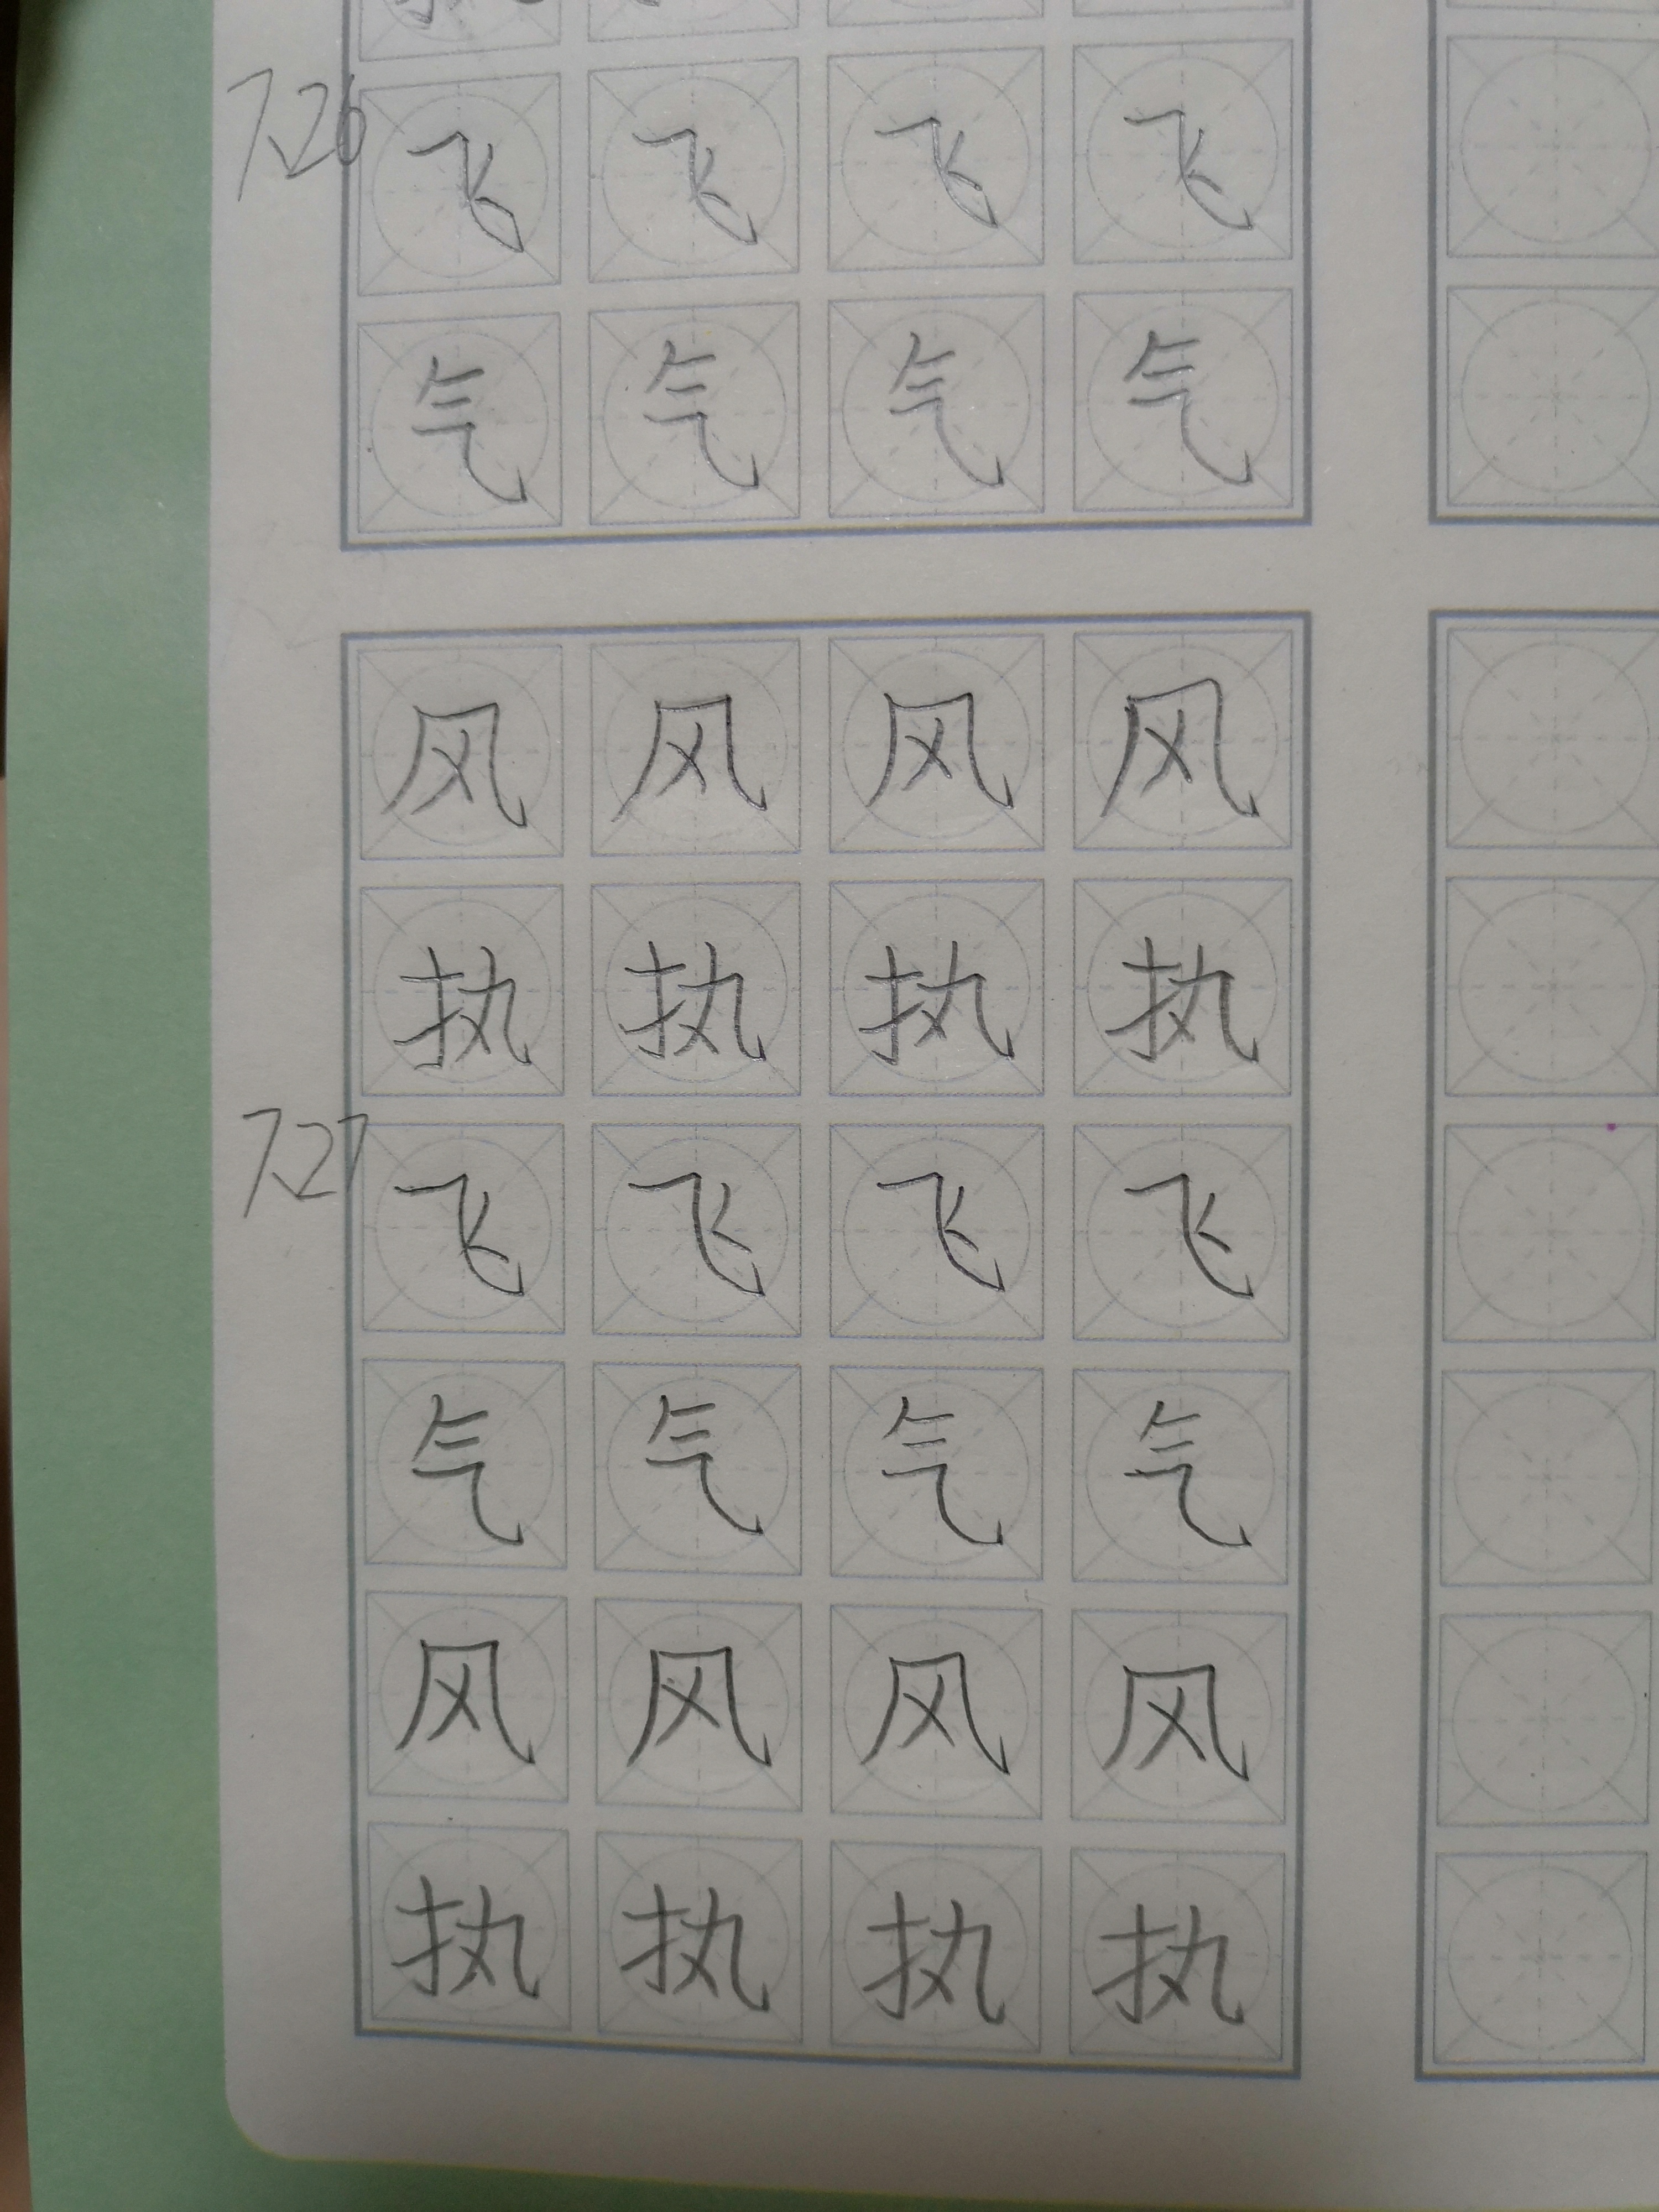 7.26
飞 飞 飞 飞
气 气 气 气
风 风 风 风
执 执 执 执
7.27
飞 飞 飞 飞
气 气 气 气
风 风 风 风
执 执 执 执